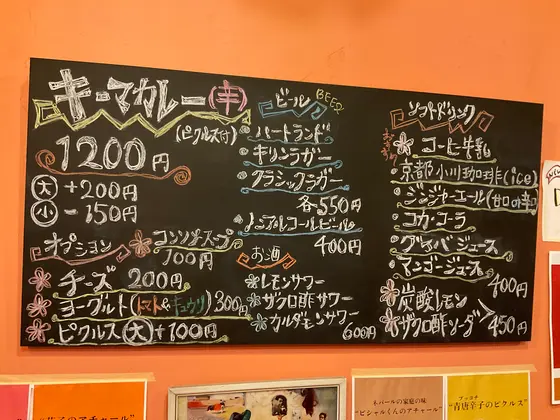 キーマカレー(辛)
(ピクルス付)
1200円
大 +200円
小 -150円
オプション
コンソメスープ
100円
チーズ 200円
ヨーグルト(トマト&キュウリ) 300円
ピクルス 大 +100円
ビール BEER
・ハートランド
・キリンラガー
・クラシックラガー
各550円
・ノンアルコールビール
400円
お酒
レモンサワー
ザクロ酢サワー
カルダモンサワー
600円
ソフトドリンク
おすすめ
コーヒー牛乳
・京都小川珈琲(ice)
・ジンジャーエール(甘口or辛口
・コカ・コーラ
・グァバジュース
・マンゴージュース
400円
炭酸レモン
ザクロ酢ソーダ
450円
のアチャール"
ネパールの家庭の味
"ビシャルくんのアチャール"
"青唐辛子のピクルス"